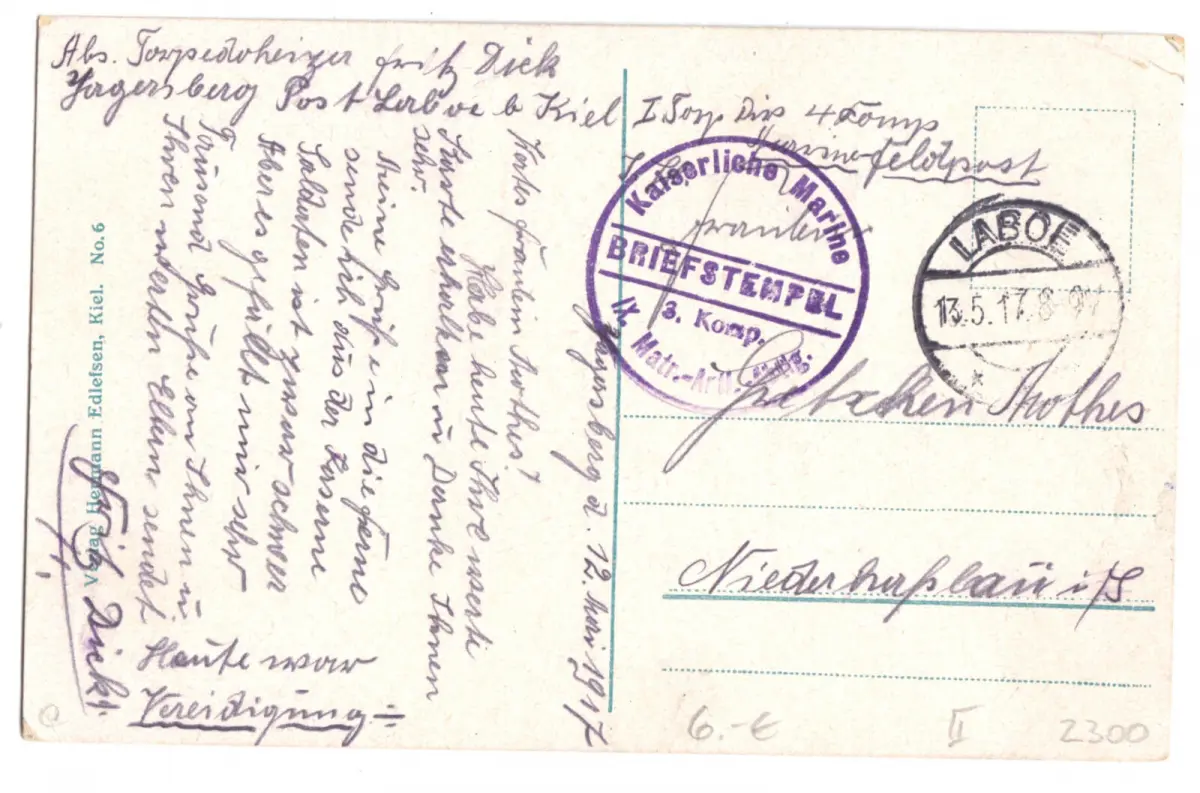 Abs. Torpedoheizer Fritz Dick
Jägersberg Post Laboe b Kiel I Torp Div 4 Komp
Marine Feldpost
Kaiserliche Marine
BRIEFSTEMPEL
3. Komp.
Matr.-Art. Abtlg.
LABOE
13.5.17. 8-9V
Fräulein
Gretschen Nothes
Niederhaßlau i/S.
Jägersberg d. 12. Mai 1917
Wertes Fräulein Nothes!
Habe heute Ihre werte
Karte erhalten u Danke Ihnen
sehr.
Meine Grüße in die Ferne
sende ich aus der Kaserne
Soldaten ist zwar schwer
Aber es gefällt mir sehr
Tausend Grüße an Ihnen u
Ihren werten Eltern sendet
Fritz Dick.
Heute war
Vereidigung =
Verlag Hermann Edlefsen, Kiel. No. 6
6.-€
II
2300